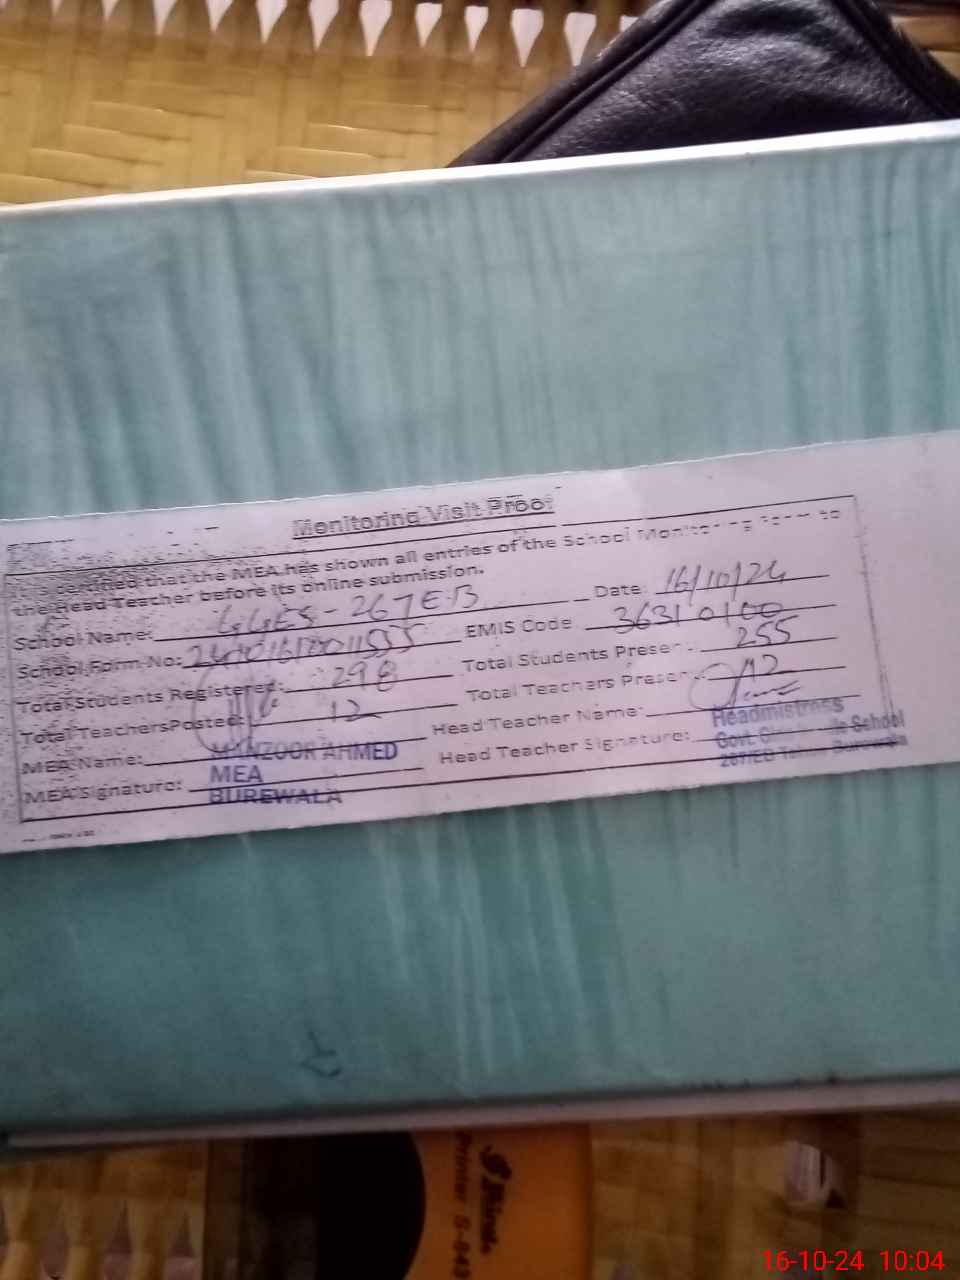 Monitoring Visit Proof
It is certified that the MEA has shown all entries of the School Monitoring Form to
the Head Teacher before its online submission.
School Name: GGES - 267 EB Date: 16/10/24
School Form No: EMIS Code 36310100
Total Students Registered: 298 Total Students Present: 255
Total Teachers Posted: 12 Total Teachers Present: 12
MEA Name: MANZOOR AHMED Head Teacher Name: Headmistress
MEA Signature: MEA Head Teacher Signature: Govt. School
BUREWALA 267/EB Burewala
16-10-24 10:04